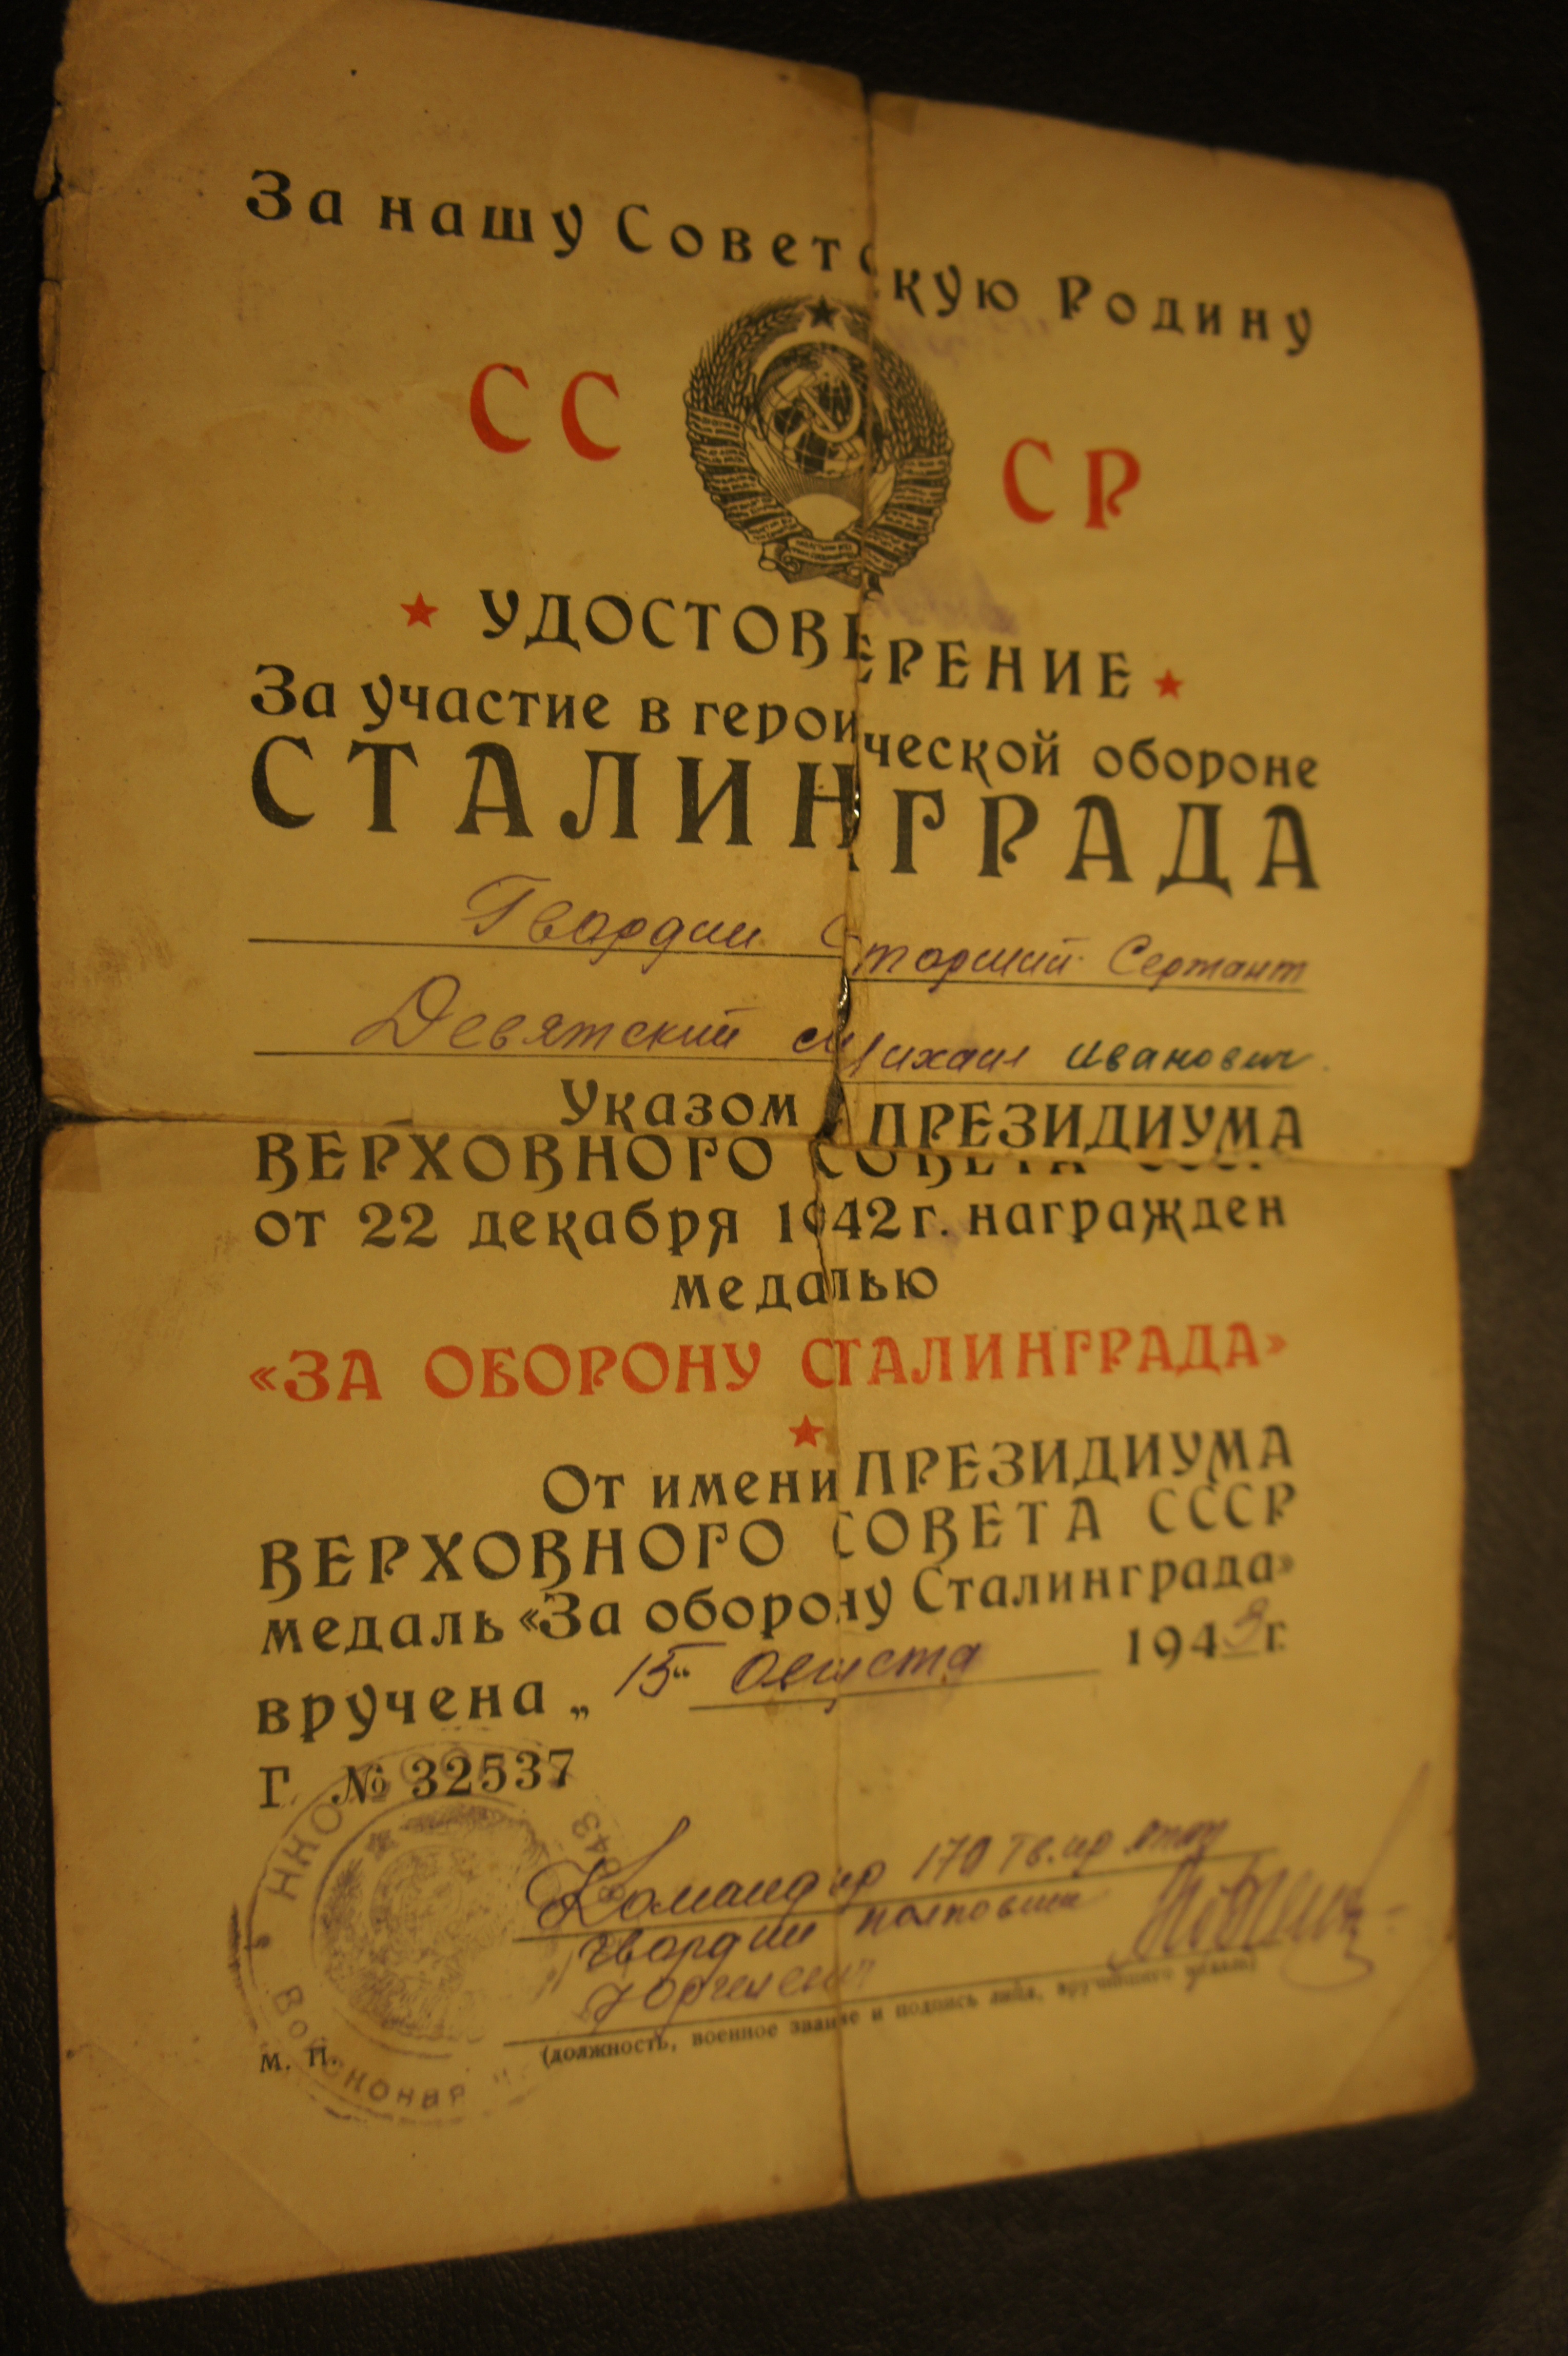 За нашу Советскую Родину
СС СР
УДОСТОВЕРЕНИЕ
За участие в героической обороне
СТАЛИНГРАДА
Гвардии Старший Сержант
Девятский Михаил Иванович.
Указом ПРЕЗИДИУМА
ВЕРХОВНОГО СОВЕТА СССР
от 22 декабря 1942 г. награжден
медалью
«ЗА ОБОРОНУ СТАЛИНГРАДА»
От имени ПРЕЗИДИУМА
ВЕРХОВНОГО СОВЕТА СССР
медаль «За оборону Сталинграда»
вручена „15“ августа 1943 г.
Г. № 32537
Командир 170 Гв.
гвардии
м. п.
(должность, военное звание и подпись лица, вручившего медаль)